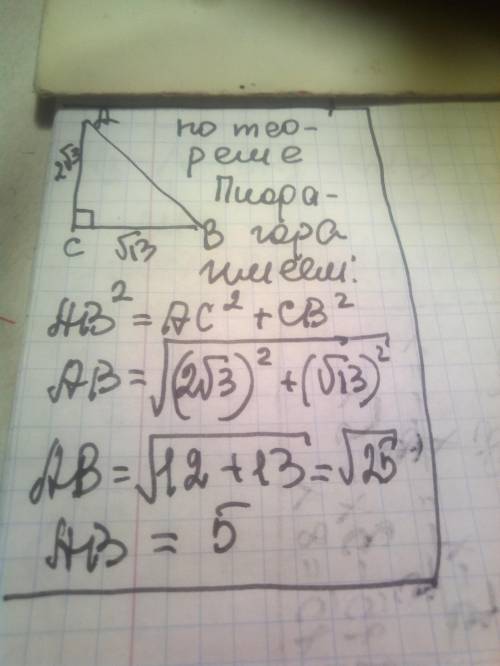 A
2√3
C
√13
B
по тео-
реме
Пифа-
гора
имеем:
AB² = AC² + CB²
AB = √(2√3)² + (√13)²
AB = √12 + 13 = √25
AB = 5